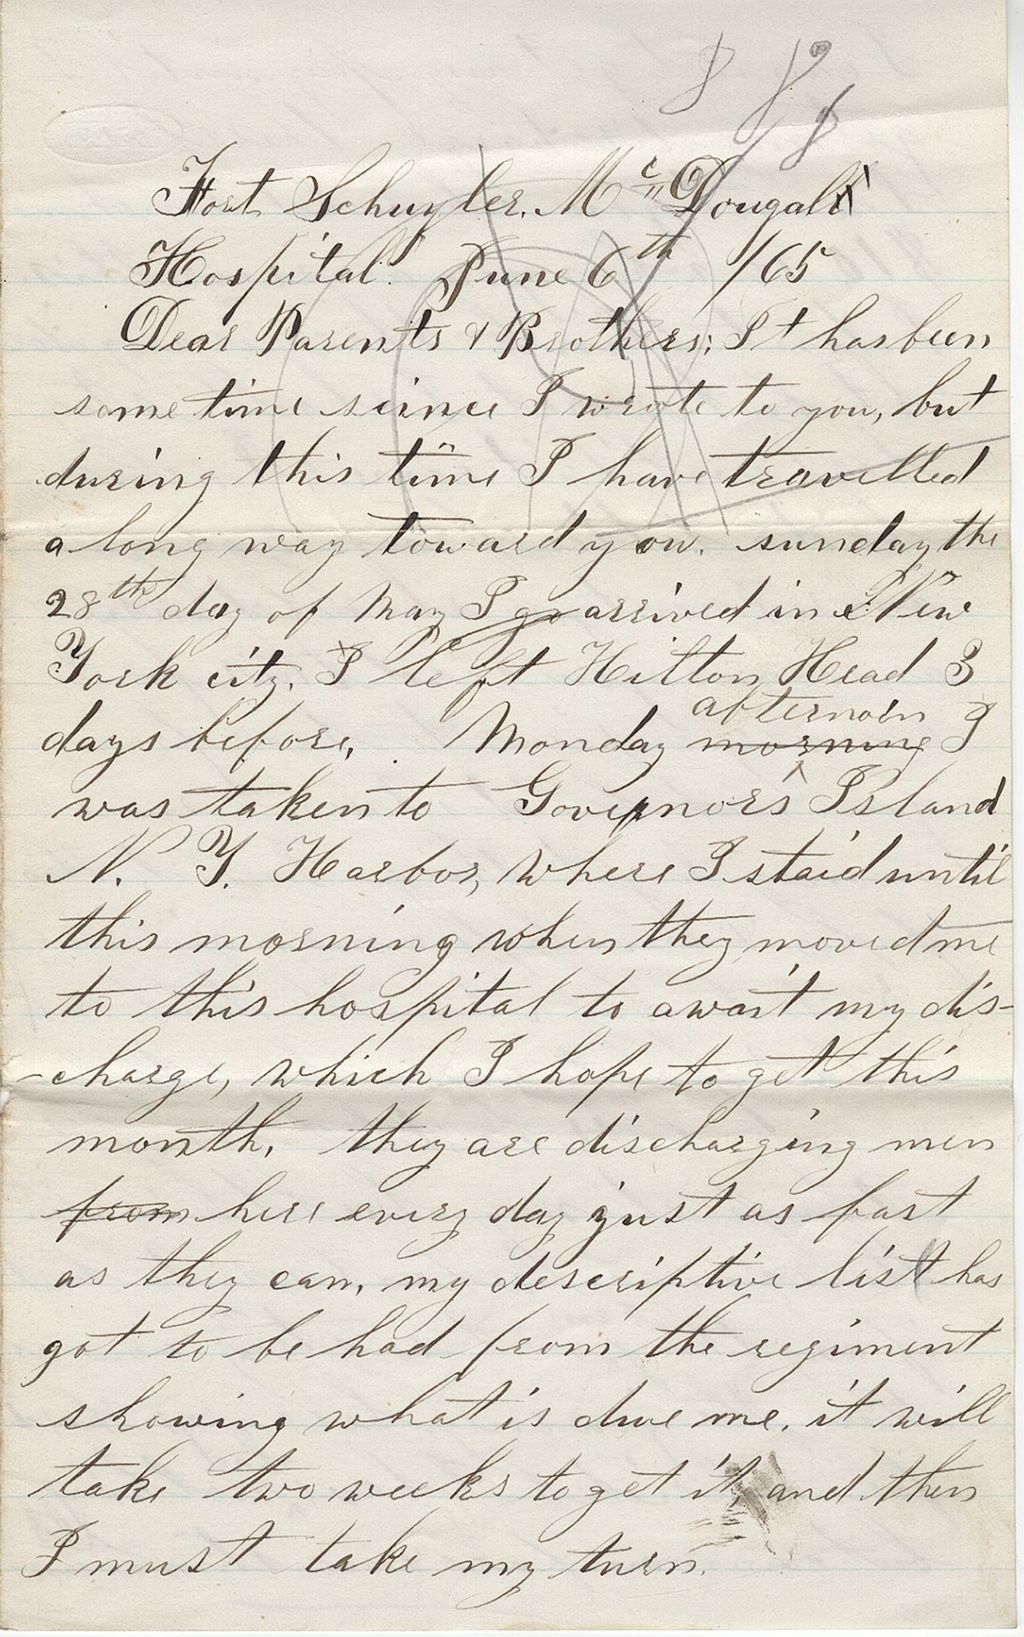 Fort Schuyler, Mc Dougall
Hospital. June 6th /65
Dear Parents & Brothers; It has been
some time scince I wrote to you, but
during this time I have travelled
a long way toward you. sunday the
28th day of May I go arrived in New
York city. I left Hilton Head 3
days before, Monday morning afternoon I
was taken to Governors Island
N. Y. Harbor, where I staid until
this morning when they moved me
to this hospital to await my dis-
-charge, which I hope to get this
month. they are discharging men
from here every day just as fast
as they can, my descriptive list has
got to be had from the regiment
showing what is due me. it will
take two weeks to get it, and then
I must take my turn.